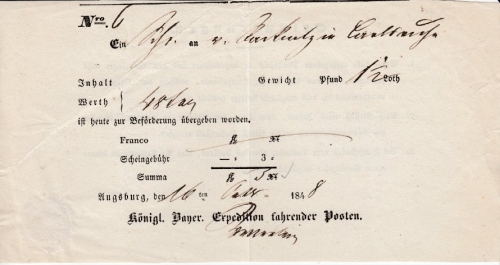 Nro. 6
Ein Schr. an v. in Carlsruhe
Inhalt Gewicht Pfund 1/2 Loth
Werth
ist heute zur Beförderung übergeben worden.
Franco fl. Xr.
Scheingebühr — " 3 "
Summa fl. 3 Xr.
Augsburg, den 16 ten 1848
Königl. Bayer. Expedition fahrender Posten.